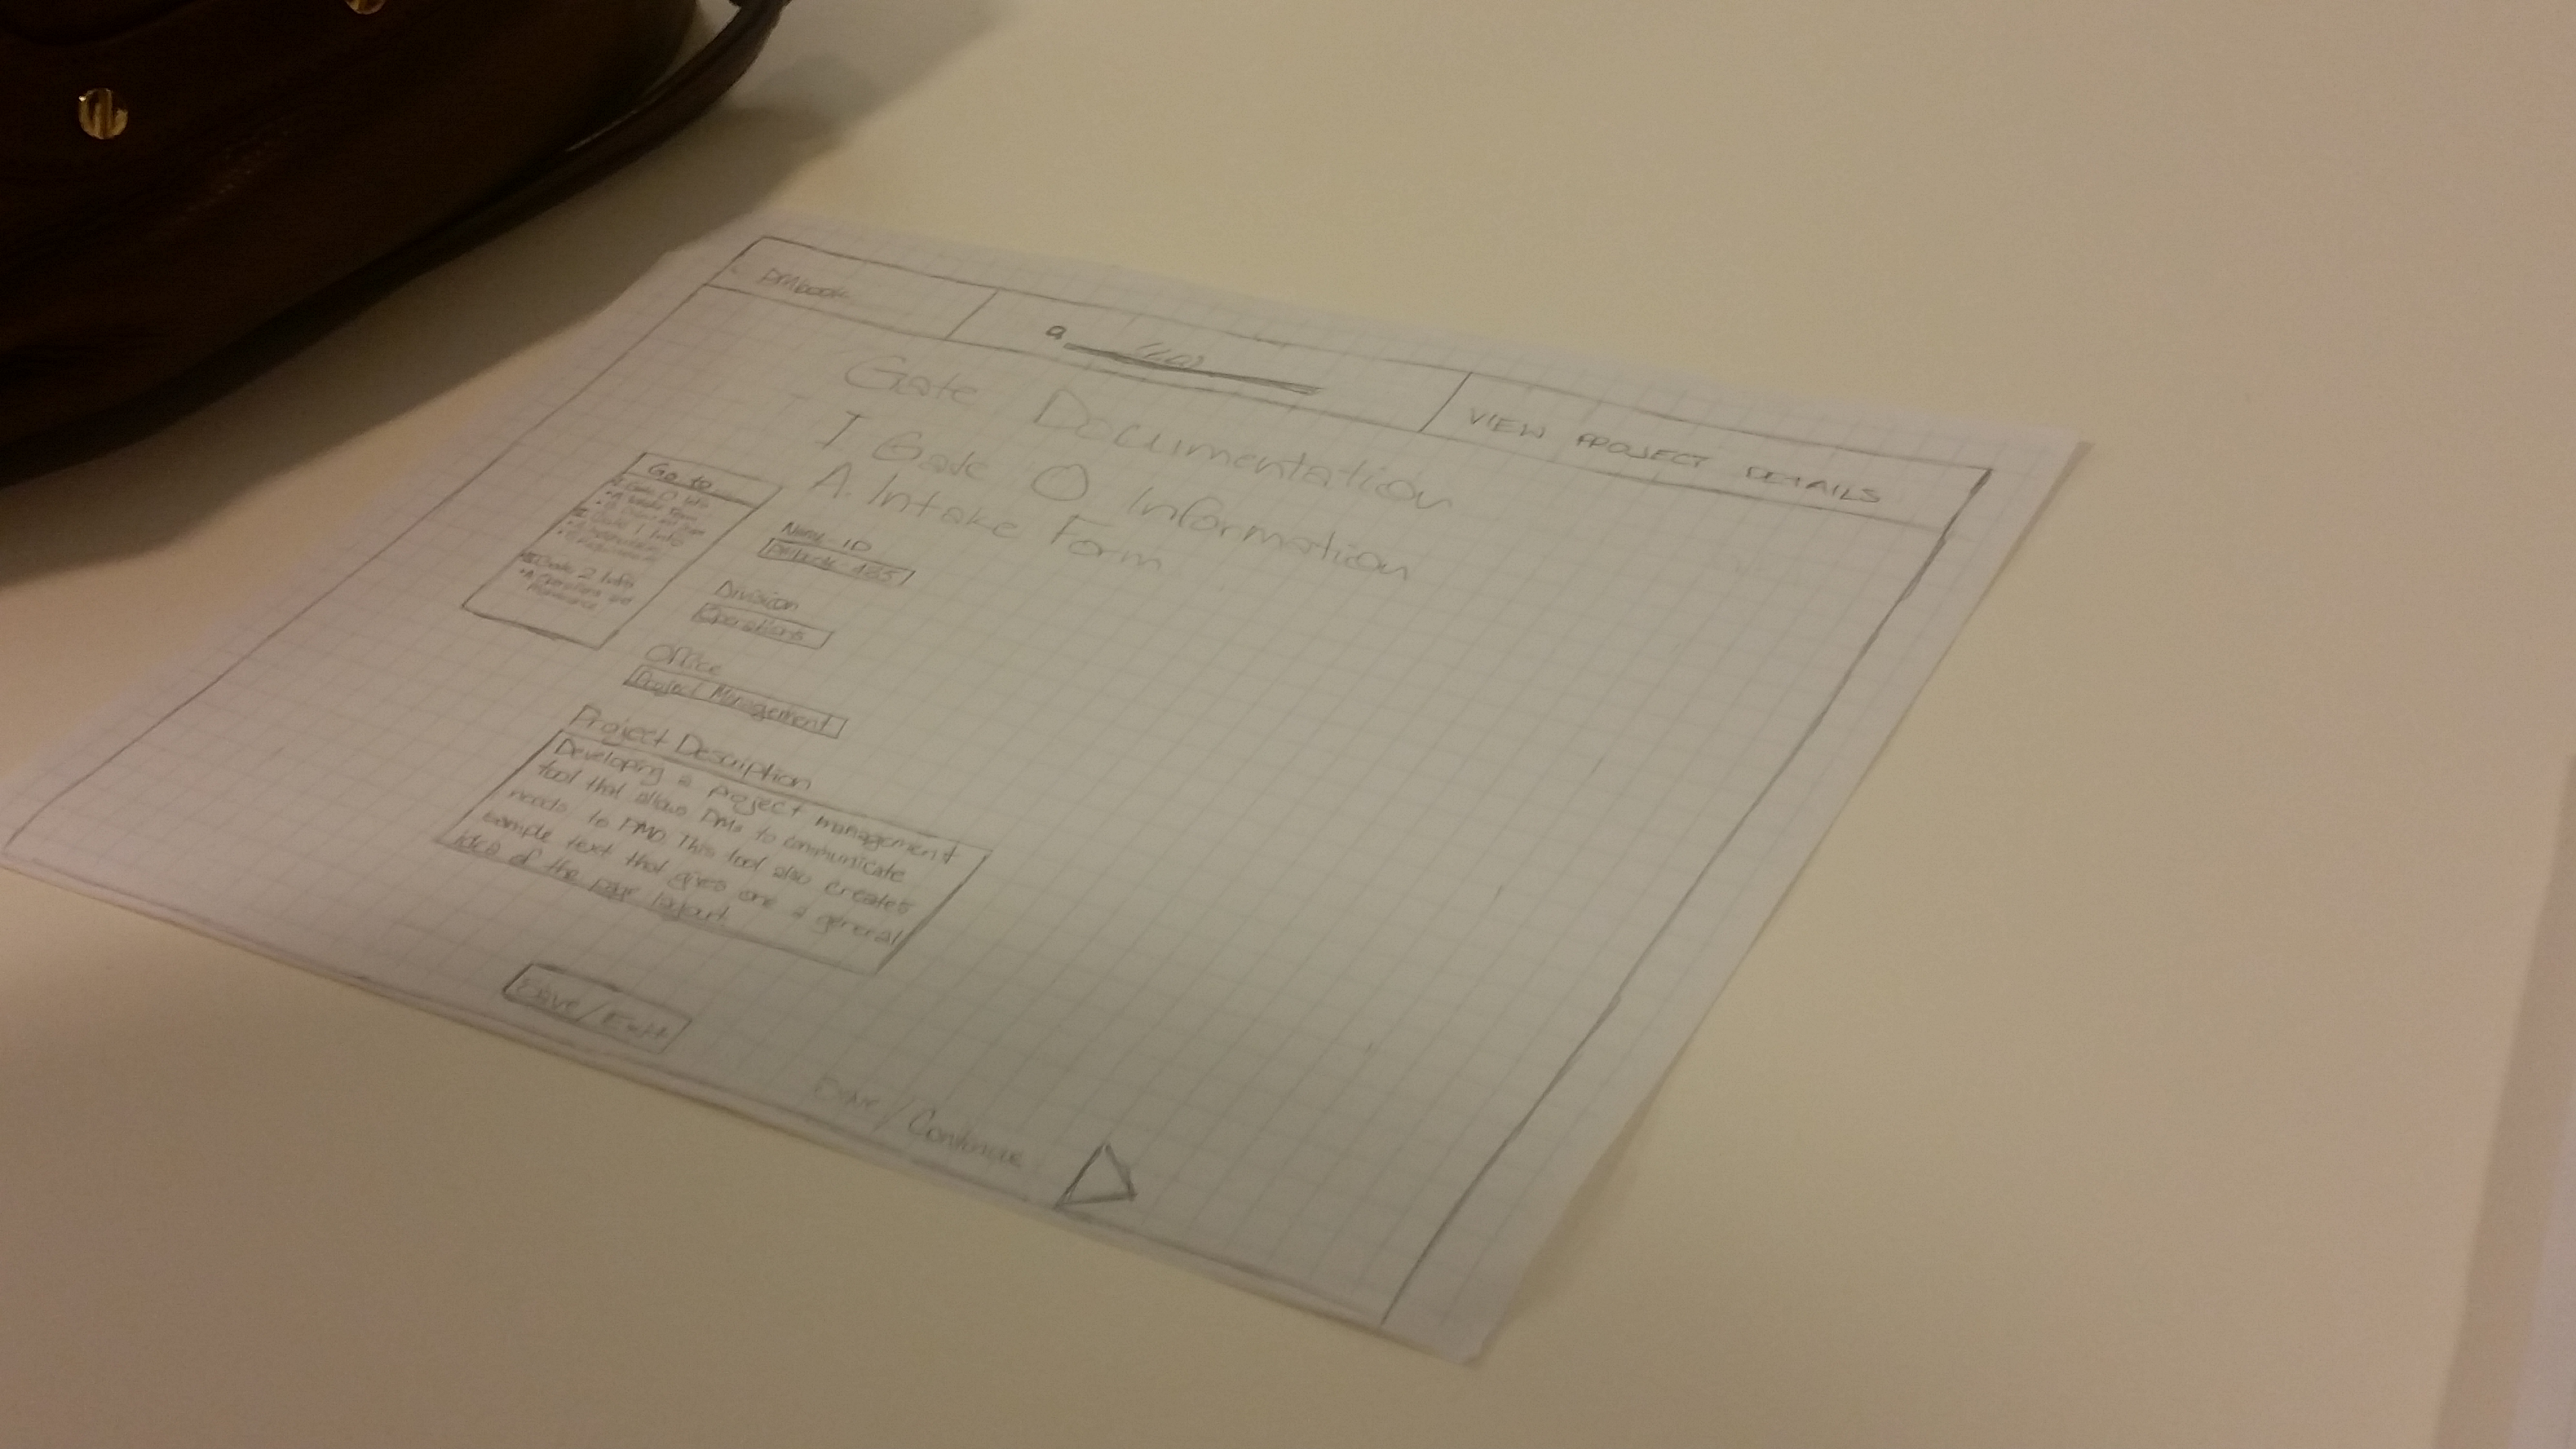 pmbook
VIEW PROJECT DETAILS
Gate Documentation
I Gate 0 Information
A. Intake Form
Go to
I Gate 0 Info
II Gate 1 Info
III Gate 2 Info
• A Operations and
Maintenance
ID
Division
Operations
Office
Project Management
Project Description
Developing a project management
tool that allows PMs to communicate
needs to PMO. This tool also creates
sample text that gives one a general
idea of the page layout.
Save/Exit
Save/Continue